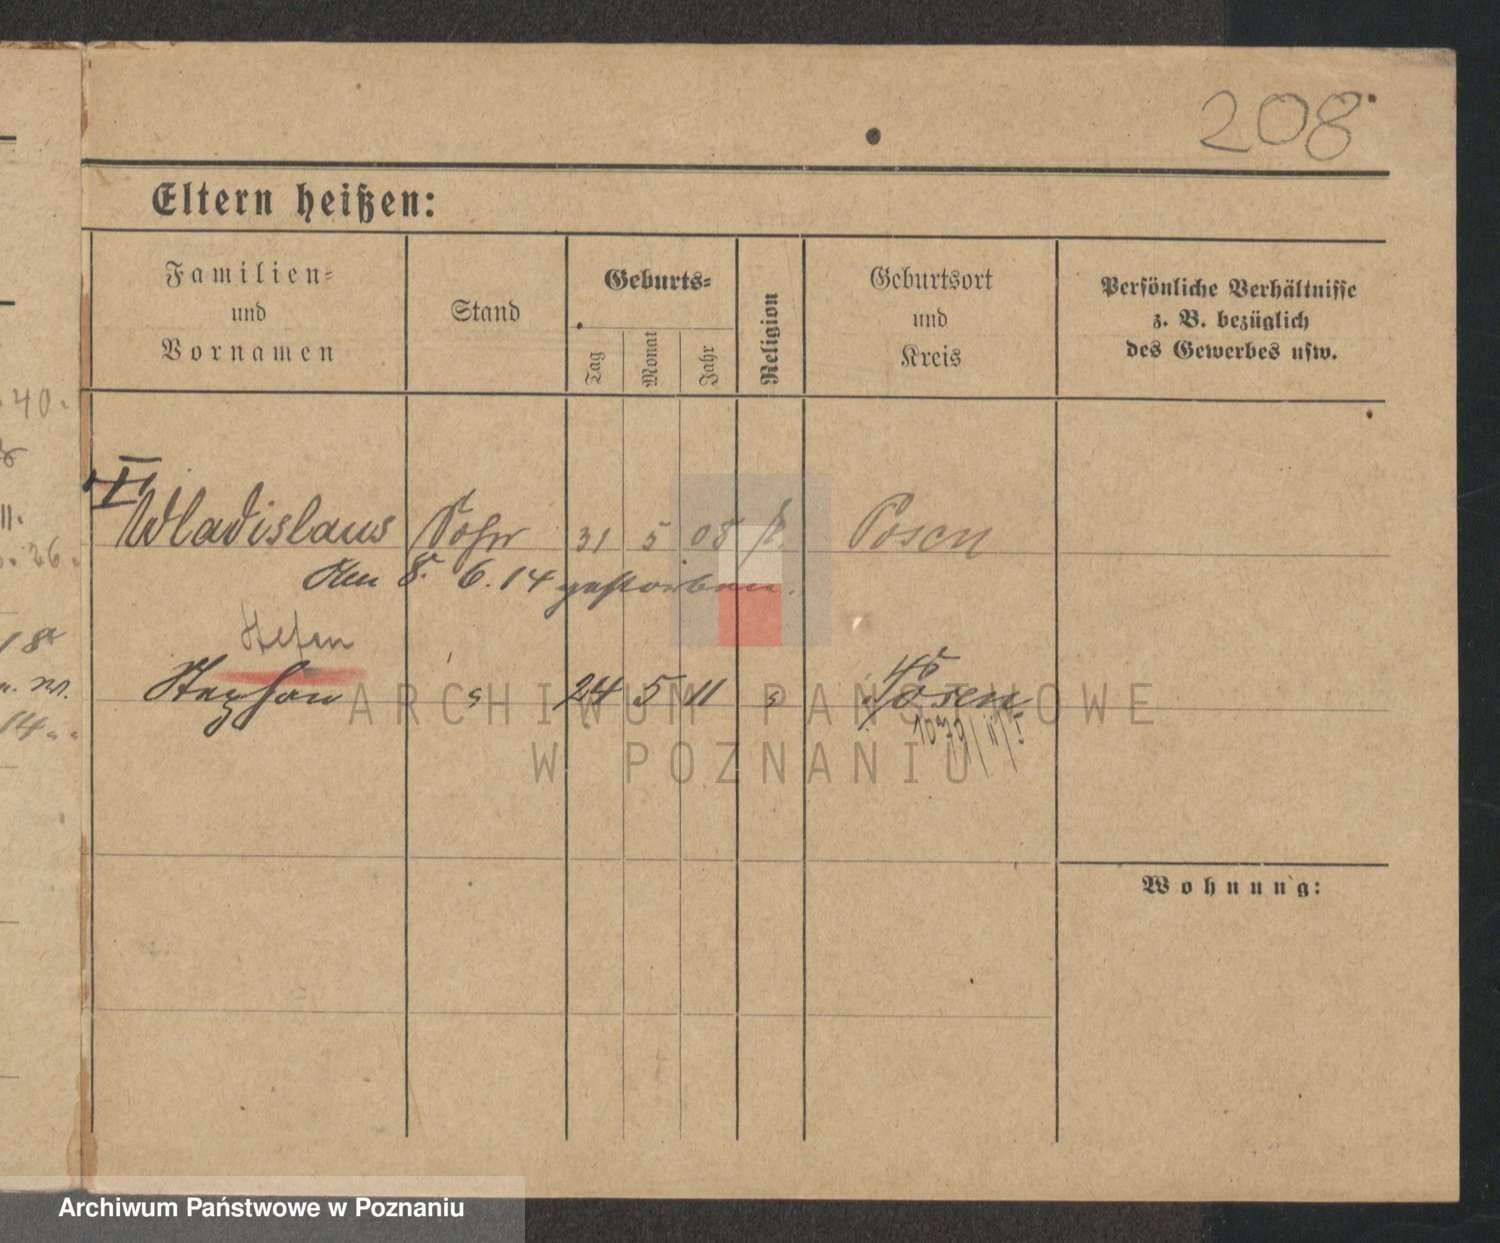 208
Eltern heißen:
Familien-
und
Vornamen
Stand
Geburts-
Tag
Monat
Jahr
Religion
Geburtsort
und
Kreis
Persönliche Verhältnisse
z. B. bezüglich
des Gewerbes usw.
40.
I
Wladislaus Sohn 31 5 05 k. Posen
11.
26.
den 8. 6. 14 gestorben.
Stefan
18
Stephan " 24 5 11 " Posen
14
ARCHIWUM PAŃSTWOWE
W POZNANIU
Wohnung:
Archiwum Państwowe w Poznaniu